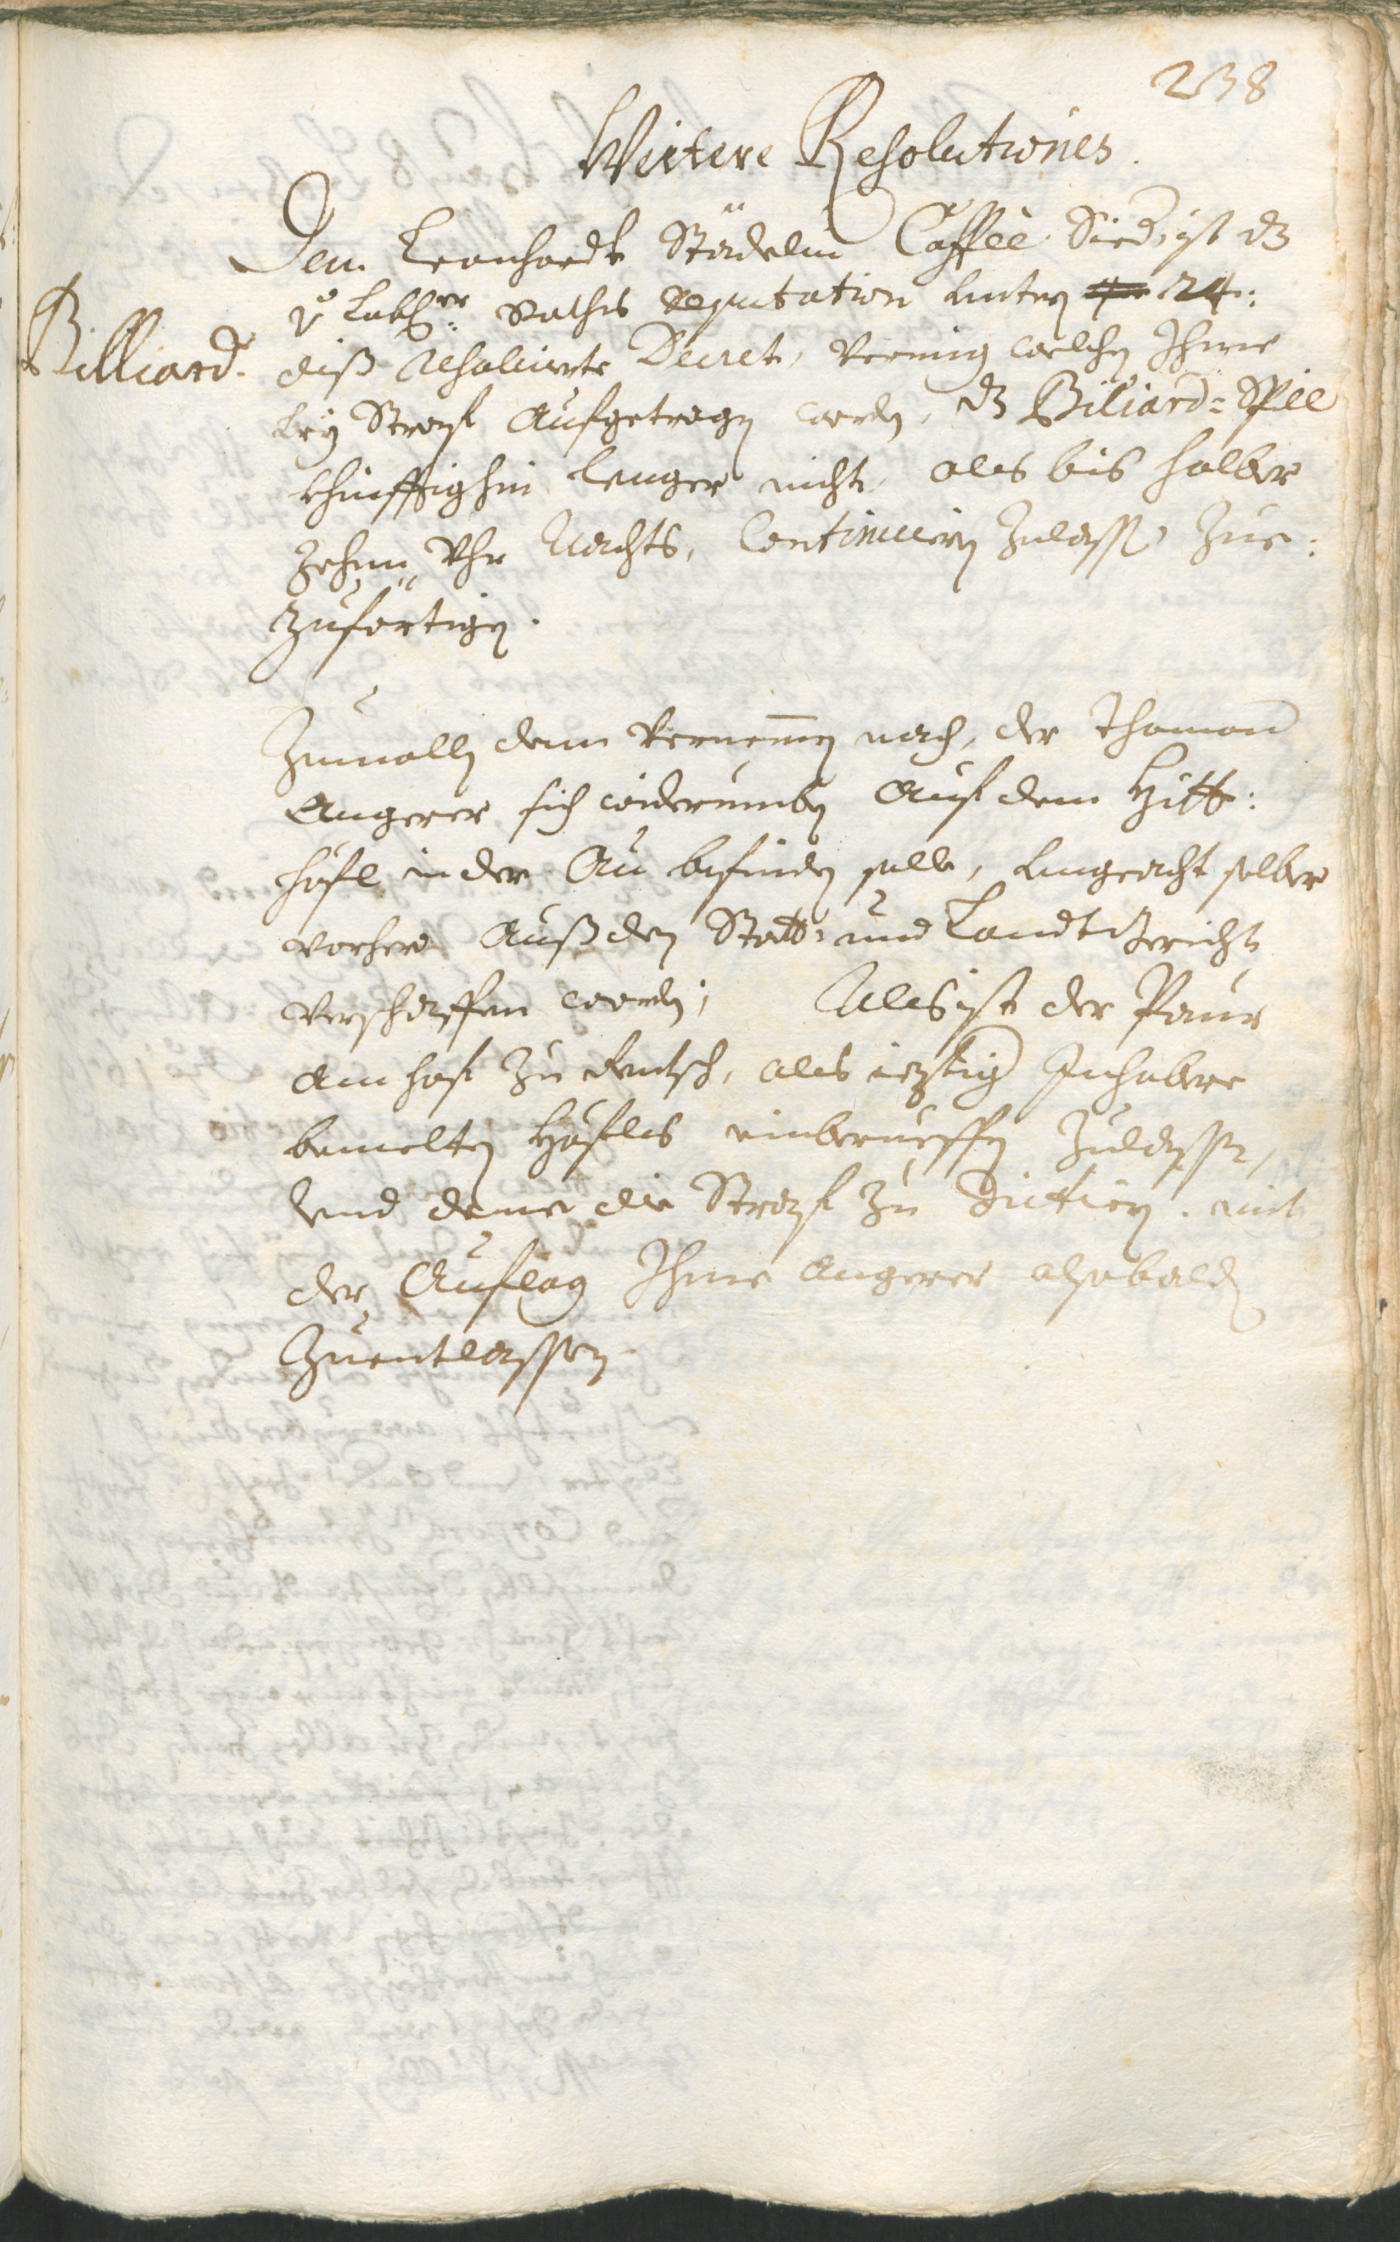 238
Weitere Resolutiones.
Dem Leonhardt Städelin Caffèe Sied, ist dz
v Lobl:er Raths deputation unterm 24:
diß resolvierte Decret, Vermig welchen Ihme
Billiard.
bey Straff Aufgetragen worden, dz Biliard=Spill
khünfftighin lenger nicht, als bis halber
Zehen Uhr Nachts, Continuiern Zulassen Zue:
Zufertigen.
Zumallen dem Vernemmen nach, der Thoman
Angerer sich widerumben Auf dem Hitt:
höfl in der Au befinden solle, Ungeacht selber
vorhero Auß den Statt: und Landtgericht
verschaffen worden; Als ist der Paur
am hof Zu, als ieztig Inhaber
bemelten Höfles einberueffen Zulassen,
Und deme die Straff Zu Dictiern. mit
der Auflag Ihme Angerer alsobald
Zuentlassen.